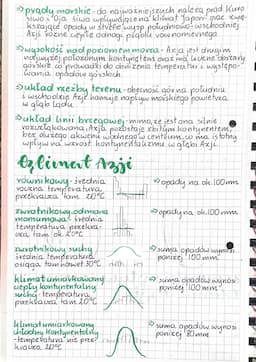 ⇒ prądy morskie - do najważniejszych należą prąd Kuro
Siwo i Oja Siwo wpływające na klimat Japonii oraz zwię-
kszające opady w strefie wysp południowo-wschodniej
Azji
⇒ wysokość nad poziomem morza - Azja jest drugim
najwyżej położonym kontynentem oraz ma liczne obszary
górskie co prowadzi do obniżenia temperatur i występo-
wania opadów górskich.
⇒ układ rzeźby terenu - obecność gór na południu
i wschodzie Azji hamuje napływ morskiego powietrza
w głąb lądu
⇒ układ linii brzegowej - mimo, że jest ona silnie
rozczłonkowana, Azja pozostaje zbitym kontynentem,
bez dużego akwenu wodnego w centrum, co ma istotny
wpływ na wzrost kontynentalizmu w głębi Azji.
Klimat Azji
równikowy - średnia
roczna temperatura
przekracza tam 20°C
⇒ opady na ok. 100 mm
zwrotnikowy odmiana
monsunowa - średnia
temperatura przekra-
cza tam ok. 20°C
⇒ opady na ok. 100 mm
zwrotnikowy suchy
średnia temperatura
osiąga tam nawet 30°C
⇒ suma opadów wynosi
poniżej 100 mm
klimat umiarkowany
ciepły kontynentalny
suchy - temperatura
przekracza tam 20°C
⇒ suma opadów wynosi
poniżej 100 mm
klimat umiarkowany
chłodny kontynentalny
- temperatura nie prze-
kracza 20°C
⇒ suma opadów wynosi
poniżej 80 mm